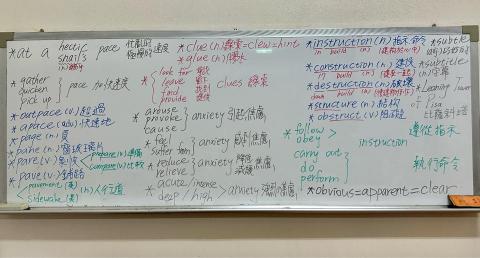 *at a hectic pace 忙亂的
snail's 極慢的速度
*gather
quicken
pick up
pace 加快速度
*outpace (v.) 超過
*apace (adv.) 快速地
*page (n.) 頁
*pane (n.) 窗玻璃片
*pare (v.)
prepare (v.) 準備
compare (v.) 比較
*pave (v.) 鋪路
pavement (英)
sidewalk (美)
(n.) 人行道
*clue (n.) 線索=clew=hint
*glue (n.) 膠水
*look for 尋找
leave 留下
find 找到
provide 提供
clues 線索
*arouse
provoke
cause
anxiety 引起焦慮
*feel
suffer from
anxiety 感到焦慮
*reduce
relieve
anxiety 降低
減緩 焦慮
*acute/intense
deep / high
anxiety 強烈焦慮
*instruction (n.) 指示命令
in build (n.)
*construction (n.) 建設
build (n.)
*destruction (n.) 破壞
down build (n.)
*structure (n.) 結構
*obstruct (v.) 阻礙
*subtle
*subtitle
(n.) 字幕
*Leaning Tower
of Pisa
比薩斜塔
*follow
obey
instruction
遵從指示
carry out
do
perform
執行命令
*obvious=apparent=clear